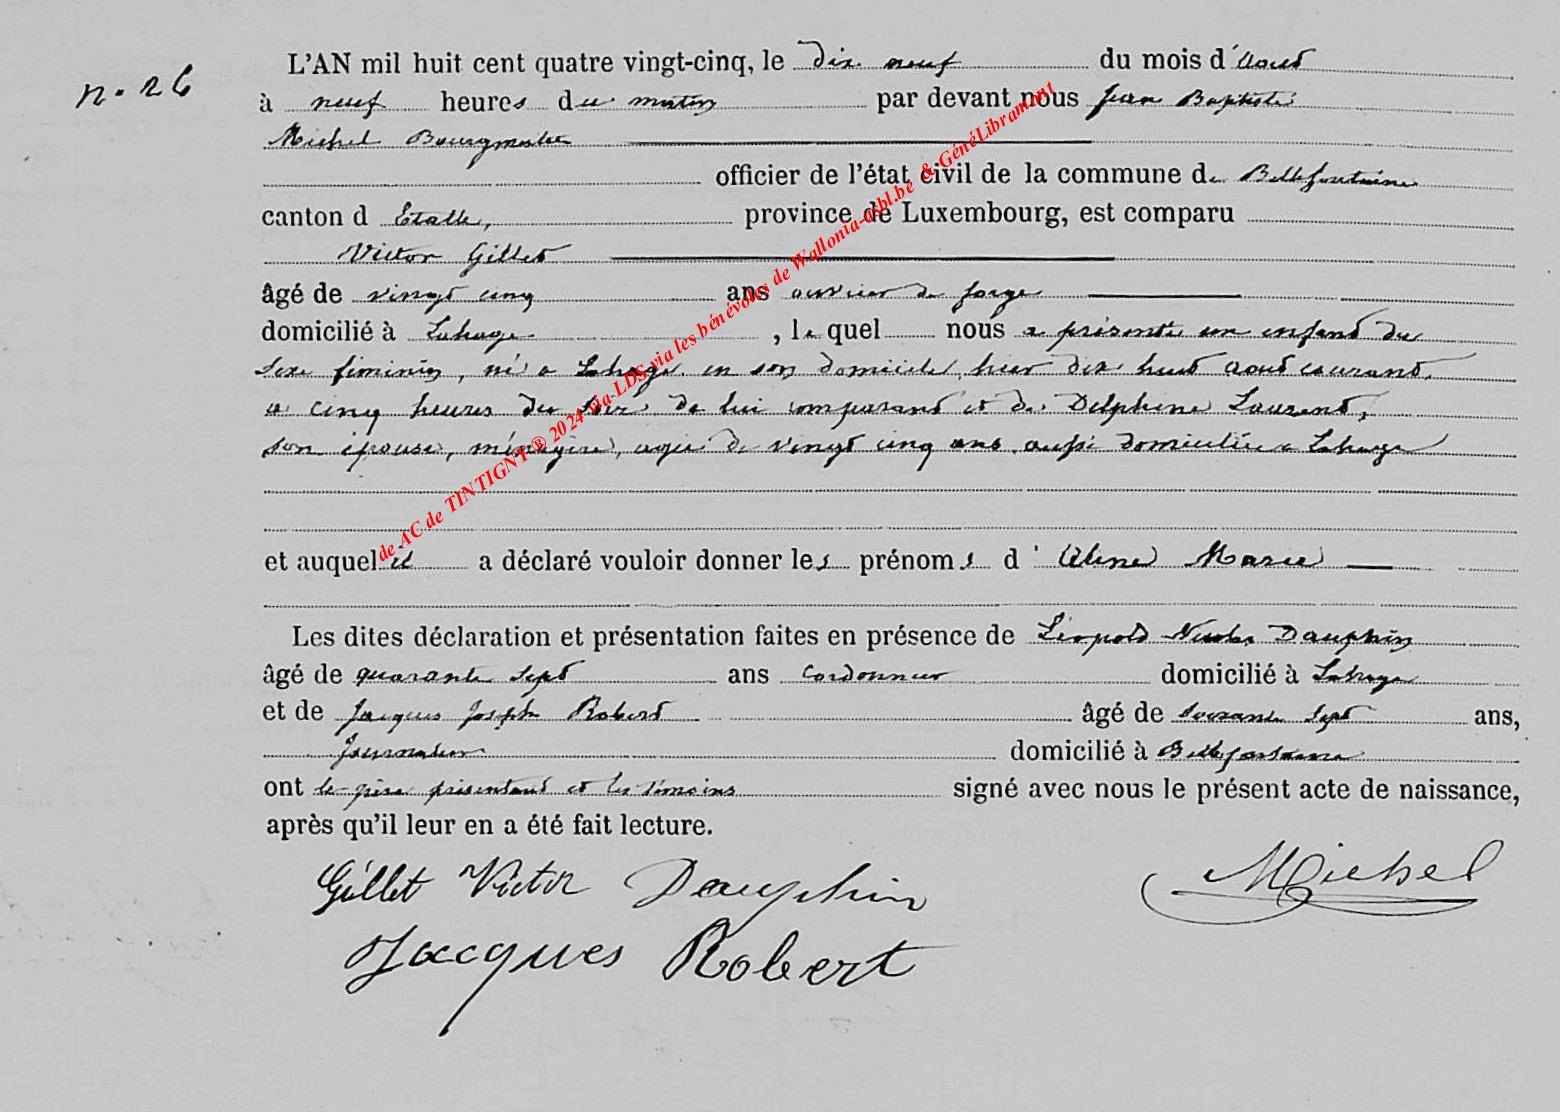 n. 26
L'AN mil huit cent quatre vingt-cinq, le dix neuf du mois d'Aout
à neuf heures du matin par devant nous Jean Baptiste
Michel Bourgmestre
officier de l'état civil de la commune de Bellefontaine
canton d Etalle, province de Luxembourg, est comparu
Victor Gillet
âgé de vingt cinq ans ouvrier de forge
domicilié à Lahage , le quel nous a présenté un enfant du
sexe féminin, né a Lahage en son domicile, hier dix huit aout courant,
a cinq heures du soir, de lui comparant et de Delphine Laurent,
son épouse, ménagère, agée de vingt cinq ans, aussi domiciliée a Lahage
et auquel il a déclaré vouloir donner les prénoms d' Aline Marie
Les dites déclaration et présentation faites en présence de Léopold Nicolas Dauphin
âgé de quarante sept ans cordonnier domicilié à Lahage
et de Jacques Joseph Robert âgé de soixante sept ans,
Journalier domicilié à Bellefontaine
ont le père présentant et les témoins signé avec nous le présent acte de naissance,
après qu'il leur en a été fait lecture.
Gillet Victor Dauphin Michel
Jacques Robert
de AC de TINTIGNY ® 2024 via-LDS via les bénévoles de Wallonia-asbl.be & GénéLibramont